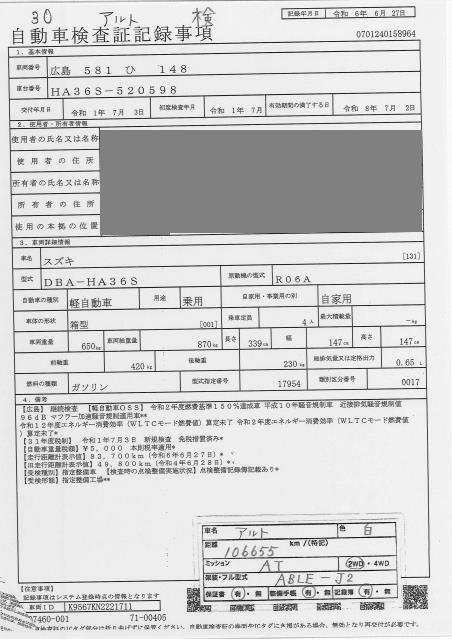 30 アルト 検
記録年月日 令和 6年 6月 27日
自動車検査証記録事項
0701240158964
1. 基本情報
車両番号 広島 581 ひ 148
車台番号 HA36S-520598
交付年月日 令和 1年 7月 3日 初度検査年月 令和 1年 7月 有効期間の満了する日 令和 8年 7月 2日
2. 使用者・所有者情報
使用者の氏名又は名称
使用者の住所
所有者の氏名又は名称
所有者の住所
使用の本拠の位置
3. 車両詳細情報
車名 スズキ [131]
型式 DBA-HA36S 原動機の型式 R06A
自動車の種別 軽自動車 用途 乗用 自家用・事業用の別 自家用
車体の形状 箱型 [001] 乗車定員 4人 最大積載量 -kg
車両重量 650kg 車両総重量 870kg 長さ 339cm 幅 147cm 高さ 147cm
前軸重 420kg 後軸重 230kg 総排気量又は定格出力 0.65 L
燃料の種類 ガソリン 型式指定番号 17954 類別区分番号 0017
4. 備考
【広島】 継続検査 【軽自動車OSS】 令和2年度燃費基準150%達成車 平成10年騒音規制車 近接排気騒音規制値
96dB マフラー加速騒音規制適用車**
令和12年度エネルギー消費効率(WLTCモード燃費値)算定未了 令和2年度エネルギー消費効率(WLTCモード燃費値
)算定未了*
【31年度税制】 令和1年7月3日 新規検査 免税措置済み*
【自動車重量税額】¥5,000 本則税率適用*
【走行距離計表示値】83,700km(令和6年6月27日)*
【旧走行距離計表示値】49,800km(令和4年6月28日)*
【受検種別】指定整備車 【検査時の点検整備実施状況】点検整備記録簿記載あり*
【受検形態】指定整備工場**
車名 アルト 色 白
距離 106655 km/(特記)
ミッション AT 2WD・4WD
装装・フル型式 ABLE-J2
保証書 有・無 整備手帳 有・無 記録簿 有・無
【注意事項】
記録事項はシステム登録時点の情報となります
車両ID K9567KN2221711
07460-001 71-00405